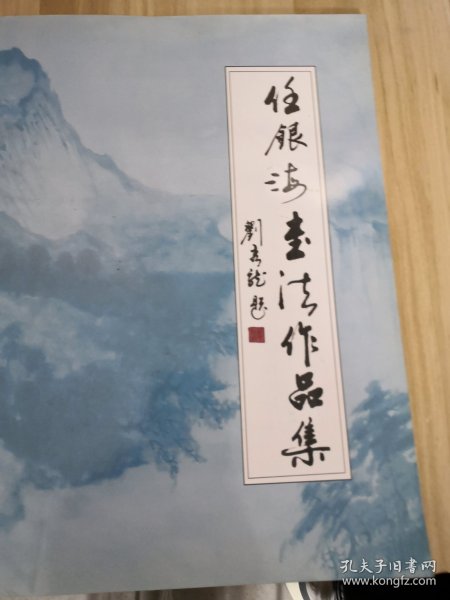 任银海书法作品集
劉克龍題
孔夫子旧书网
www.kongfz.com